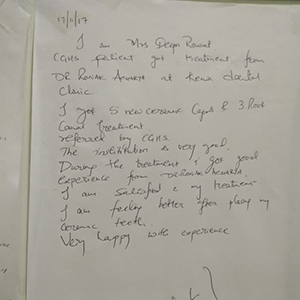 17/11/17
I am Mrs Deepa Rawat
CGHS patient got treatment from
DR at dental
Clinic
I got 5 new ceramic Caps & 3 Root
Canal treatment
referred by CGHS.
The institution is very good.
During the treatment I got good
experience from
I am satisfied c my treatment
I am feeling better after my
ceramic teeth.
Very happy with experience